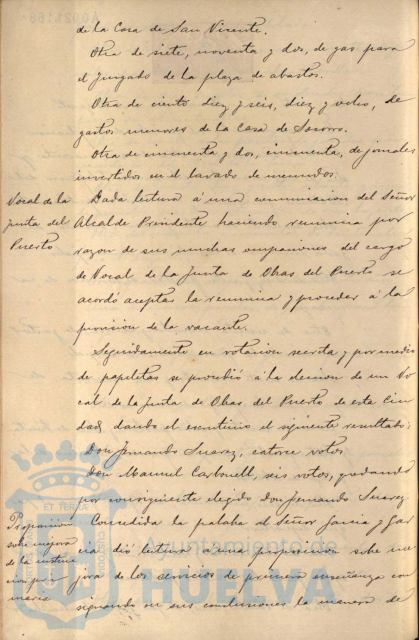 de la Casa de San Vicente.
Otra de siete, noventa y dos, de gas para
el Juzgado de la plaza de abastos.
Otra de ciento diez y seis, diez y ocho, de
gastos menores de la Casa de Socorro.
Otra de cincuenta y dos, cincuenta, de jornales
invertidos en el lavado de menudos.
Vocal de la
Junta del
Puerto
Dada lectura á una comunicacion del Señor
Alcalde Presidente haciendo renuncia por
razon de sus muchas ocupaciones del cargo
de Vocal de la Junta de Obras del Puerto se
acordó aceptar la renuncia y proceder á la
provision de la vacante.
Seguidamente en votacion secreta y por medio
de papeletas se procedió á la eleccion de un Vo
cal de la Junta de Obras del Puerto de esta Ciu
dad, dando el escrutinio el siguiente resultado:
Don Fernando Suarez, catorce votos.
Don Manuel Carbonell, seis votos, quedando
por consiguiente elegido Don Fernando Suarez.
Proposicion
sobre mejora
de la
Concedida la palabra al Señor Garcia y Gar
cia dió lectura á una proposicion sobre me
jora de los servicios de primera enseñanza con
signando en sus conclusiones la manera de
Ayuntamiento de
HUELVA